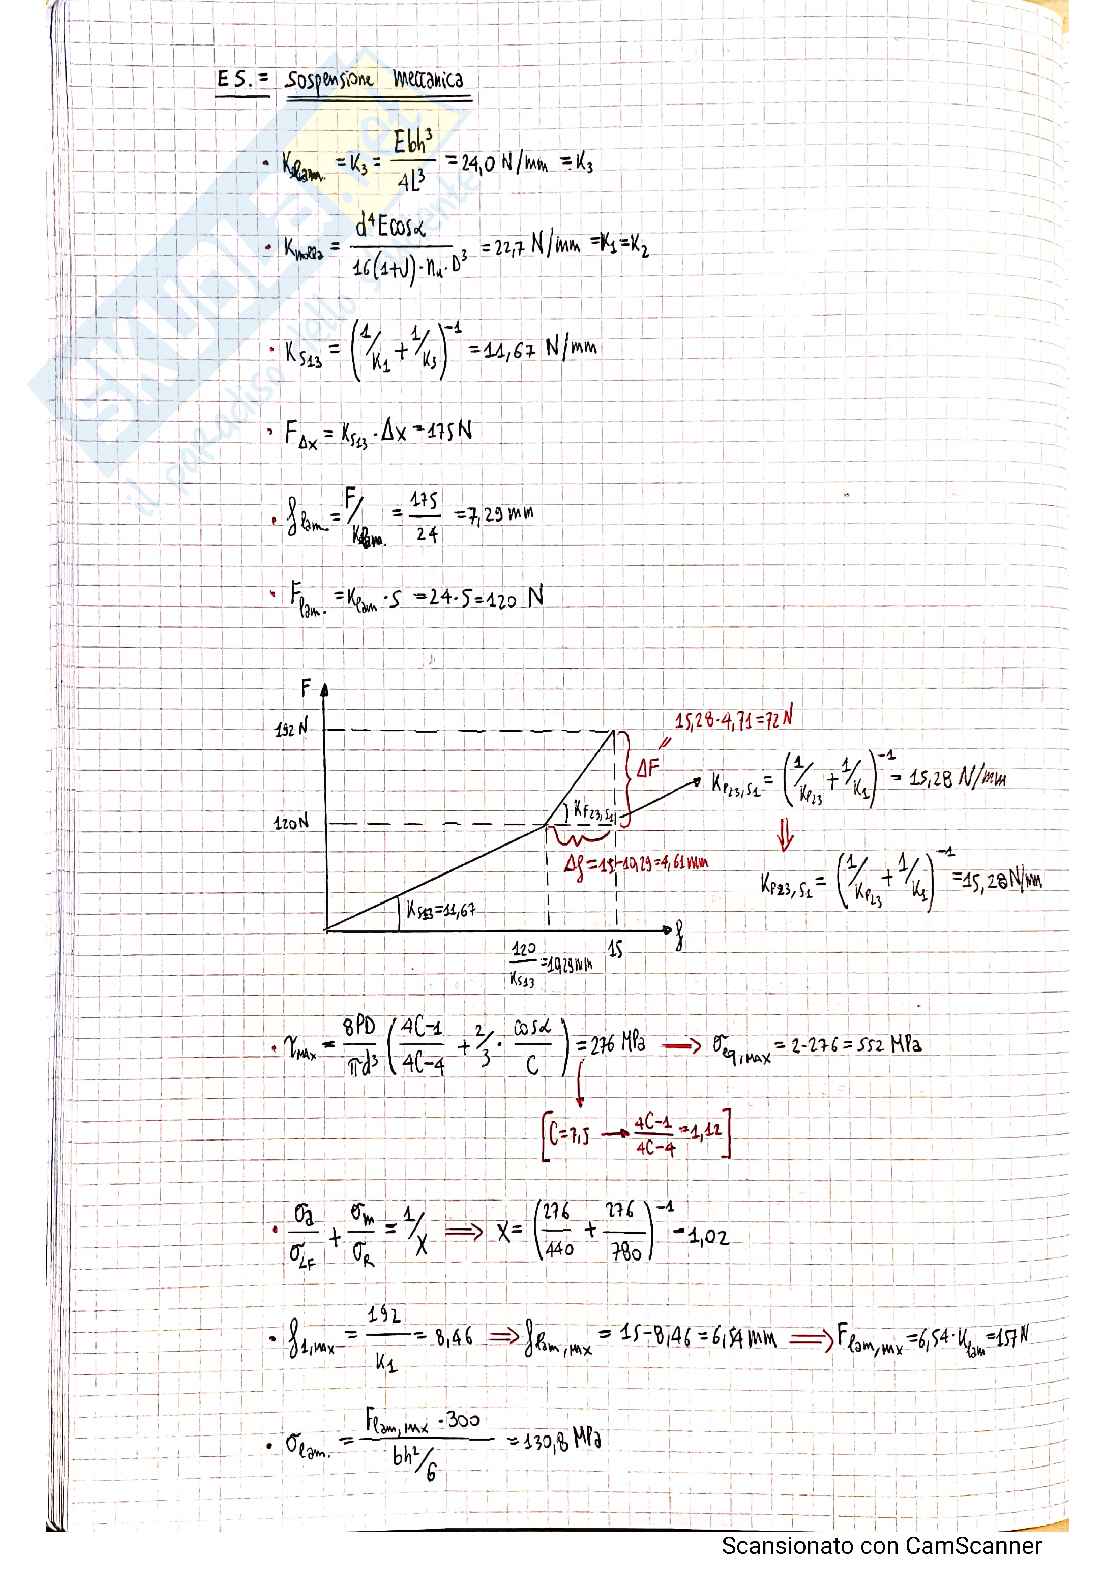 ES. = Sospensione Meccanica
• K_lam. = K₃ = Ebh³/4L³ = 24,0 N/mm = K₃
• K_molla = d⁴Ecosα/16(1+ν)·n_u·D³ = 22,7 N/mm = K₁ = K₂
• K_S13 = (1/K₁ + 1/K₃)⁻¹ = 11,67 N/mm
• F_Δx = K_S13 · Δx = 175 N
• f_lam. = F/K_lam. = 175/24 = 7,29 mm
• F_lam. = K_lam · 5 = 24·5 = 120 N
F
192 N
120 N
15,28·4,71 = 72 N
ΔF
K_P23,S1
K_P23,S1 = (1/K_P23 + 1/K₁)⁻¹ = 15,28 N/mm
Δf = 15-10,29 = 4,61 mm
K_P23,S1 = (1/K_P23 + 1/K₁)⁻¹ = 15,28 N/mm
K_S13 = 11,67
120/K_S13 = 10,29 mm
15
f
• τ_MAX = 8PD/πd³ (4C-1/4C-4 + 2/3 · cosα/C) = 276 MPa → σ_eq,MAX = 2·276 = 552 MPa
[C = 7,5 → 4C-1/4C-4 = 1,12]
• σa/σ_LF + σm/σ_R = 1/X ⇒ X = (276/440 + 276/780)⁻¹ = 1,02
• f_1,mx = 192/K₁ = 8,46 ⇒ f_lam,mx = 15-8,46 = 6,54 mm ⇒ F_lam,mx = 6,54·K_lam = 157 N
• σ_lam. = F_lam,mx · 300/bh²/6 = 130,8 MPa
SKUOLA.net
il paradiso dello studente
Scansionato con CamScanner